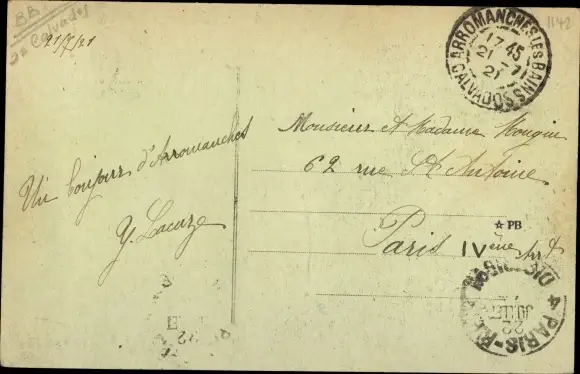 BB
Calvados
1142
21/7/21
ARROMANCHES LES BAINS
17 45
21 - 7
21
CALVADOS
Un bonjour d'Arromanches
Y. Lacuze
Monsieur et Madame Mougin
62 rue St Antoine
☆ PB
Paris IVème Arrt
DISTRIBUTION
22
4 PARIS-
22